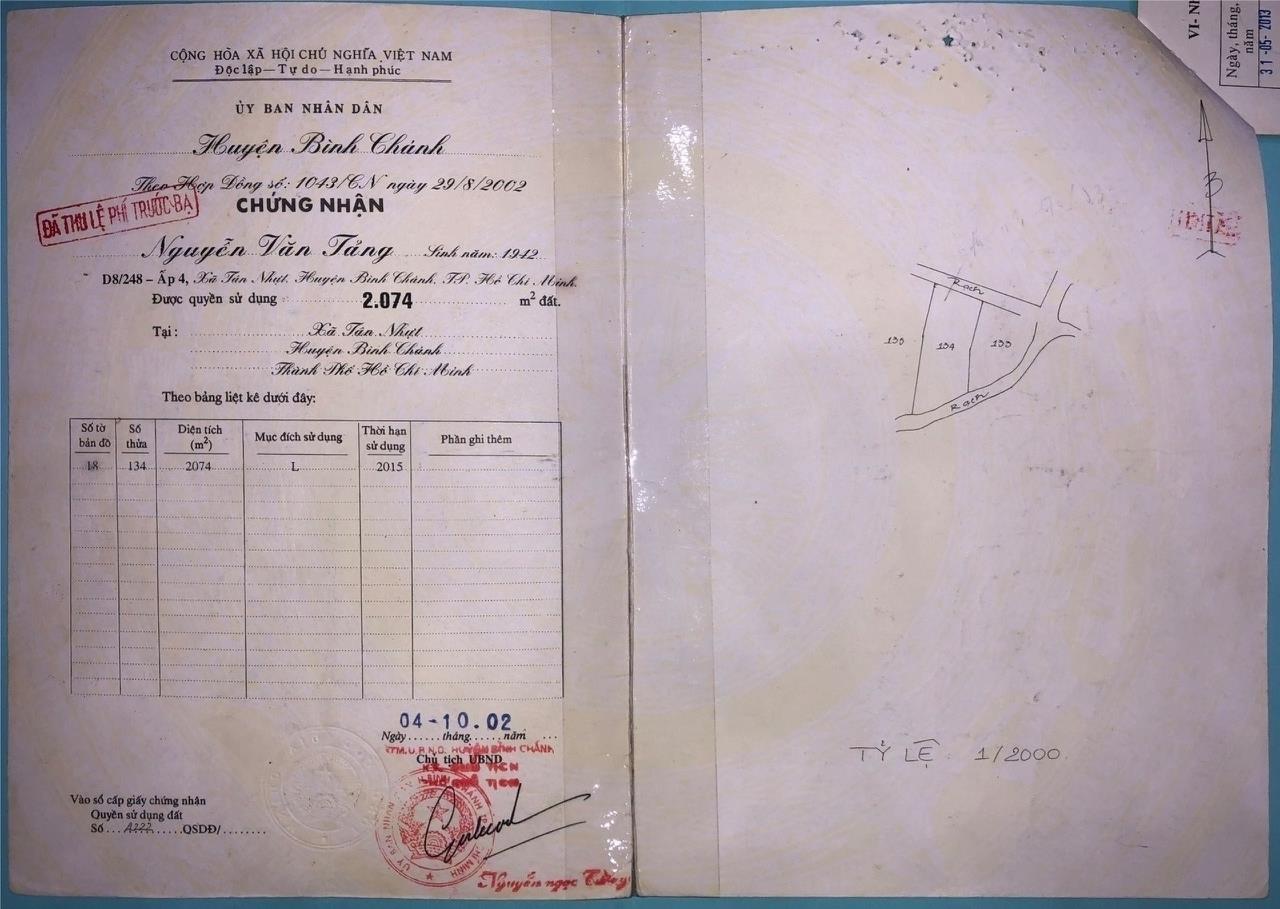 CỘNG HÒA XÃ HỘI CHỦ NGHĨA VIỆT NAM
Độc lập — Tự do — Hạnh phúc
ỦY BAN NHÂN DÂN
Huyện Bình Chánh
Theo Hợp Đồng số: 1043/CN ngày 29/8/2002
ĐÃ THU LỆ PHÍ TRƯỚC BẠ
CHỨNG NHẬN
Nguyễn Văn Tảng Sinh năm: 1942
D8/248 – Ấp 4, Xã Tân Nhựt, Huyện Bình Chánh, TP. Hồ Chí Minh.
Được quyền sử dụng 2.074 m² đất.
Tại : Xã Tân Nhựt
Huyện Bình Chánh
Thành Phố Hồ Chí Minh
Theo bảng liệt kê dưới đây:
Số tờ bản đồ Số thửa Diện tích (m²) Mục đích sử dụng Thời hạn sử dụng Phần ghi thêm
18 134 2074 L 2015
04-10.02
Ngày......tháng......năm
TM.U.B.N.D. HUYỆN BÌNH CHÁNH
Chủ tịch UBND
Vào sổ cấp giấy chứng nhận
Quyền sử dụng đất
Số QSDĐ/
Nguyễn ngọc
VI- NH
Ngày, tháng, năm
31-05-2013
B
Rạch
135
134
133
Rạch
TỶ LỆ 1/2000